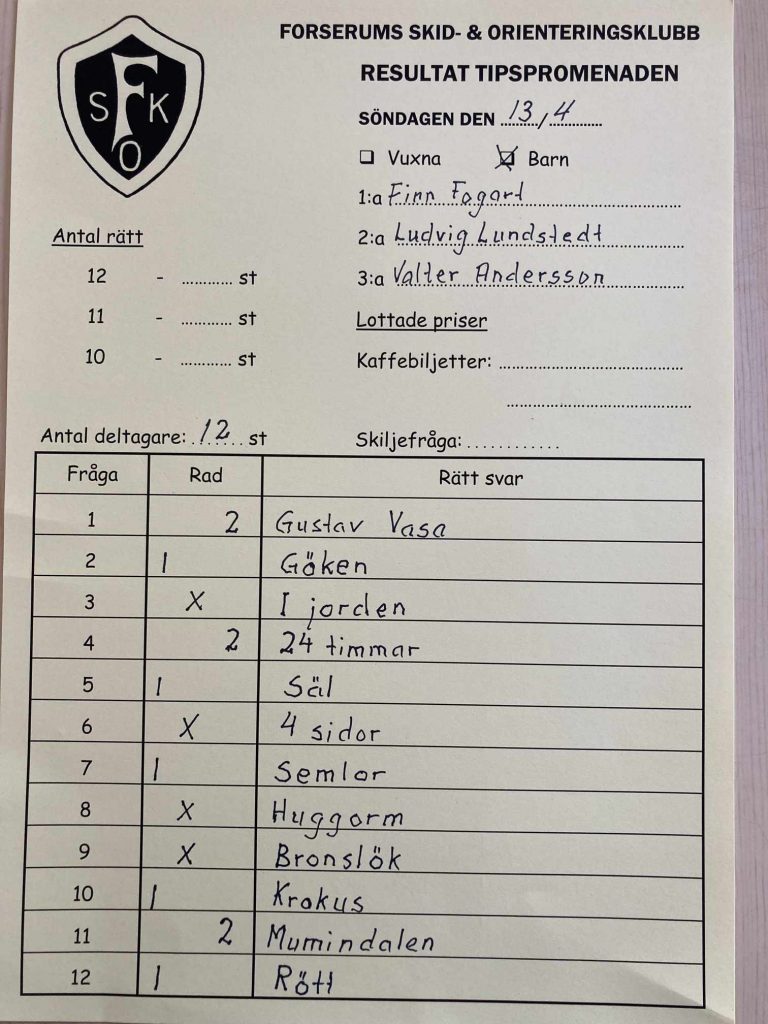 FORSERUMS SKID- & ORIENTERINGSKLUBB
RESULTAT TIPSPROMENADEN
S F K O
SÖNDAGEN DEN 13/4
Vuxna Barn
1:a Finn Fogart
2:a Ludvig Lundstedt
3:a Valter Andersson
Antal rätt
12 - ............ st
11 - ............ st
10 - ............ st
Lottade priser
Kaffebiljetter:
Antal deltagare: 12 st
Skiljefråga: ............
Fråga Rad Rätt svar
1 2 Gustav Vasa
2 1 Göken
3 X I jorden
4 2 24 timmar
5 1 Säl
6 X 4 sidor
7 1 Semlor
8 X Huggorm
9 X Bronslök
10 1 Krokus
11 2 Mumindalen
12 1 Rött